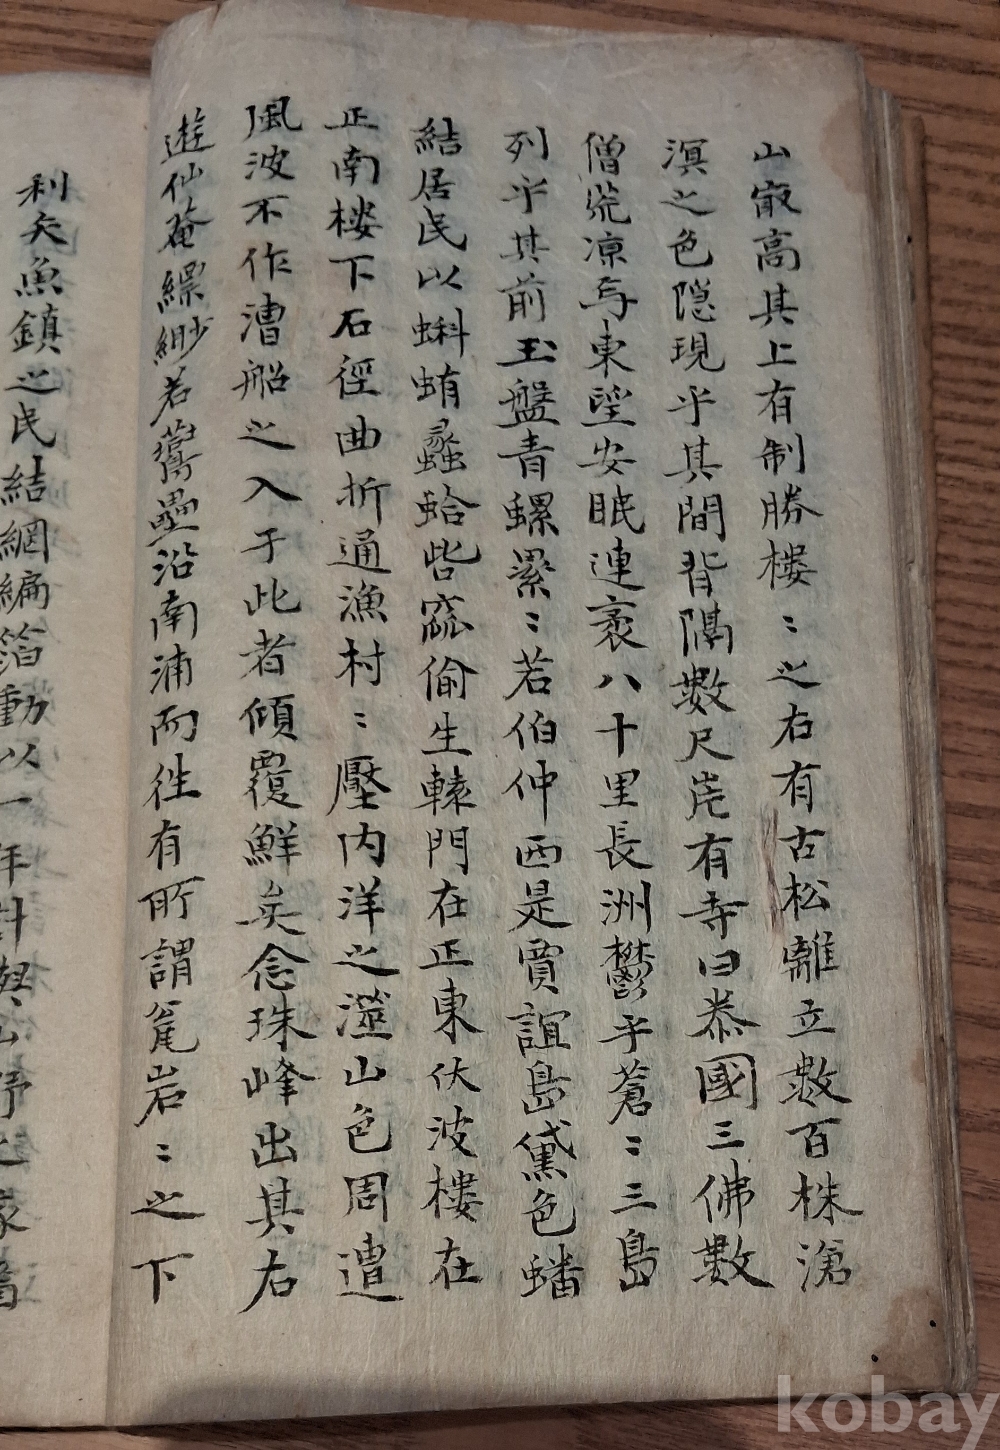 山最高其上有制勝楼〻之右有古松離立数百株滄
溟之色隠現乎其間背隅数尺岸有寺曰泰國三佛数
僧荒凉与東望安眠連袤八十里長洲鬱乎蒼〻三島
列乎其前玉盤青螺累〻若伯仲西是賈誼島黛色蟠
結居民以蝌蛕蠡蛤呰窳偷生轅門在正東伏波樓在
正南楼下石徑曲折通漁村〻壓内洋之澨山色周遭
風波不作漕船之入于此者傾覆鮮矣念珠峰出其右
遊仙菴縹緲若 壘沿南浦而徃有所謂 岩〻之下
利矣魚鎮之民結網編箔動以一年計
kobay